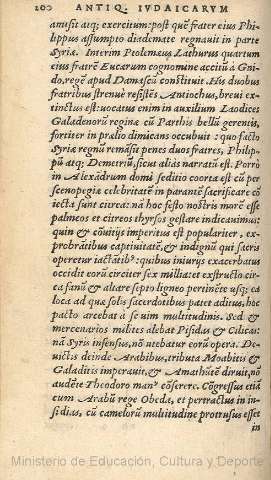 200 ANTIQ. IVDAICARVM
amisit atq; exercitum: post quē frater eius Phi-
lippus assumpto diademate regnauit in parte
Syriæ. Interim Ptolemæus Lathurus quartum
eius fratrē Eucærum cognomine acciitū a Gni-
do, regē apud Damascū constituit. His duobus
fratribus strenuè resistēs Antiochus, breui ex-
tinctus est: uocatus enim in auxilium Laodices
Galadenorū reginæ cū Parthis bellū gerentis,
fortiter in prælio dimicans occubuit: quo facto
Syriæ regnū remāsit penes duos fratres, Philip-
pū atq; Demetriū, sicut aliàs narratū est. Porrò
in Alexādrum domi seditio coorta est cū per
scenopegiæ celebritatē in parantē sacrificare cō
iecta sunt citrea: nā hoc festo nostris morē esse
palmeos et citreos thyrsos gestare indicauimus:
quin & cōuitijs impetitus est populariter, ex-
probrātibus captiuitatē, & indignū qui sacris
operetur iactātib⁹: quibus iniurijs exacerbatus
occidit eorū circiter sex millia: et exstructo cir
ca fanū & altare septo ligneo pertinēte usq; ea
loca ad quæ solis sacerdotibus patet aditus, hoc
pacto arcebat à se uim multitudinis. Sed &
mercenarios milites alebat Pisidas & Cilicas:
nā Syris infensus, nō utebatur eorū opera. De-
uictis deinde Arabibus, tributa Moabitis &
Galaditis imperauit, & Amathūtē diruit, nō
audēte Theodoro man⁹ cōserere. Cōgressus etiā
cum Arabū rege Obeda, et pertractus in in-
sidias, cū camelorū multitudine protrusus esset
in
Ministerio de Educación, Cultura y Deporte